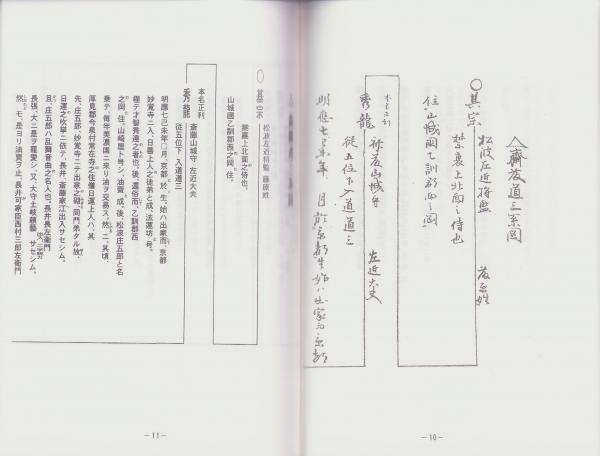 齋藤道三系図
〇其宗 松波左近将監 藤原姓
禁裏上北面之侍也
住山城國乙訓郡西之岡
本名正利
秀龍 斎藤山城守 左近大夫
従五位下入道道三
明應七己未年 月 於京都生始ハ出家而京都
−10−
〇其宗 松波左近将監 藤原姓
禁裏上北面之侍也。
山城國乙訓郡西之岡ニ住。
本名正利
秀龍 斎藤山城守 左近大夫
従五位下 入道道三
明應七己未年□月、京都ニ於テ生、始ハ出家而、京都
妙覚寺ニ入、日善上人之徒弟と成、法蓮坊ト号。
極テ才智秀逸之者也。後、還俗而、乙訓郡西
之岡ニ住。山崎屋ト号シ、油賣ト成、後、松波庄五郎と名
乗テ、毎年美濃国ニ来リ油ヲ交易ス。然ニ、其頃、
厚見郡今泉村常在寺之住僧日運上人ハ、其
先、庄五郎、妙覚寺ニテ出家之砌、同門弟タル故、
日運之吹挙ニ依テ、長井、斎藤家江出入サセシム。
且、庄五郎ハ乱舞音曲之名人也。長井長左衛門
長張、大ニ是ヲ寵愛シ、又、大守土岐頼藝 サセシム。
然トモ、是ヨリ油賣ヲ止、長井可家臣西村三郎左衛門
−11−